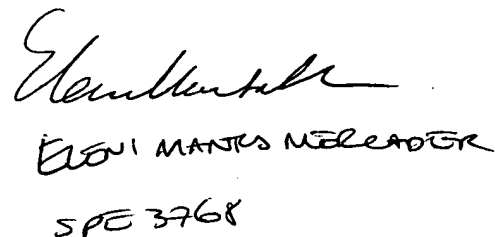 ELENI MANTIS MERCADER
SPE 3768